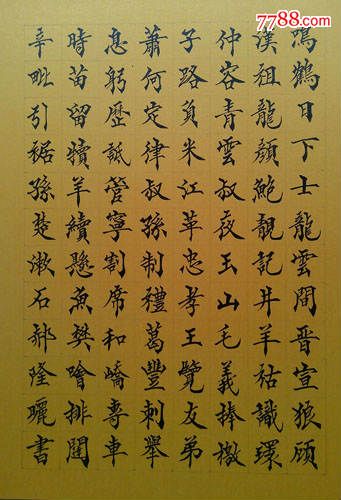 鳴鶴日下士龍雲間晉宣狼顧
漢祖龍顏鮑靚記井羊祜識環
仲容青雲叔夜玉山毛義捧檄
子路負米江革忠孝王覽友弟
蕭何定律叔孫制禮葛豐刺舉
息躬歷詆管寧割席和嶠專車
時苗留犢羊續懸魚樊噲排闥
辛毗引裾孫楚漱石郝隆曬書
7788.com